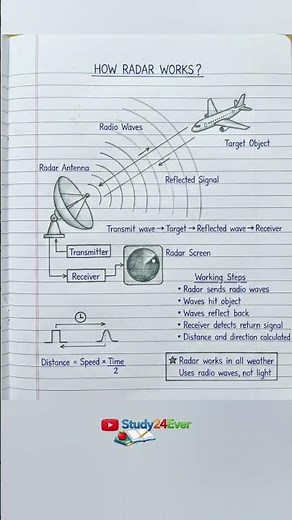 HOW RADAR WORKS?
Radio Waves
Target Object
Radar Antenna
Reflected Signal
Transmit wave → Target → Reflected wave → Receiver
Transmitter
Radar Screen
Receiver
Working Steps
• Radar sends radio waves
• Waves hit object
• Waves reflect back
• Receiver detects return signal
• Distance and direction calculated
Distance = Speed × Time
2
☆ Radar works in all weather
Uses radio waves, not light
Study24Ever